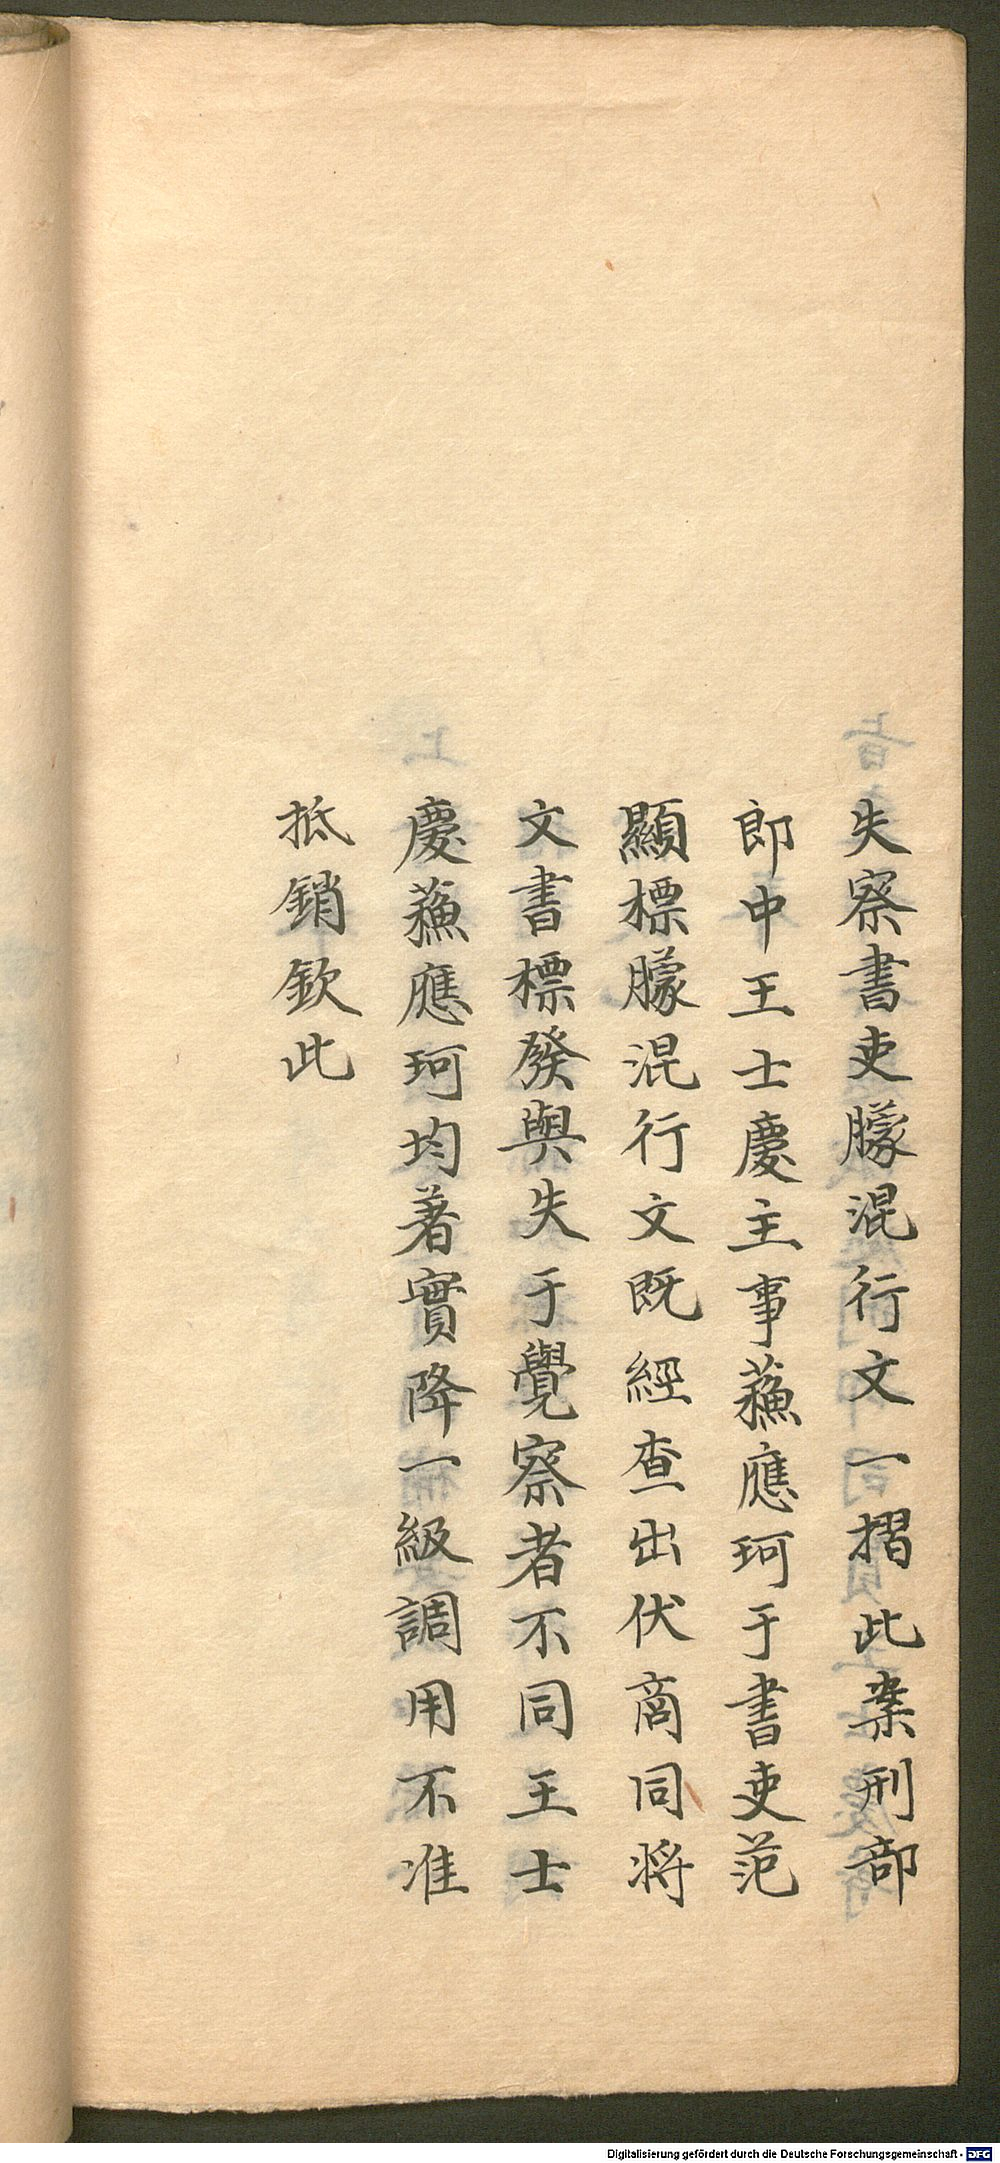 失察書吏朦混行文一摺此案刑部
郎中王士慶主事蘓應珂于書吏范
顯標朦混行文既經查出伏商同將
文書標發與失于覺察者不同王士
慶蘓應珂均著實降一級調用不准
抵銷欽此
Digitalisierung gefördert durch die Deutsche Forschungsgemeinschaft - DFG